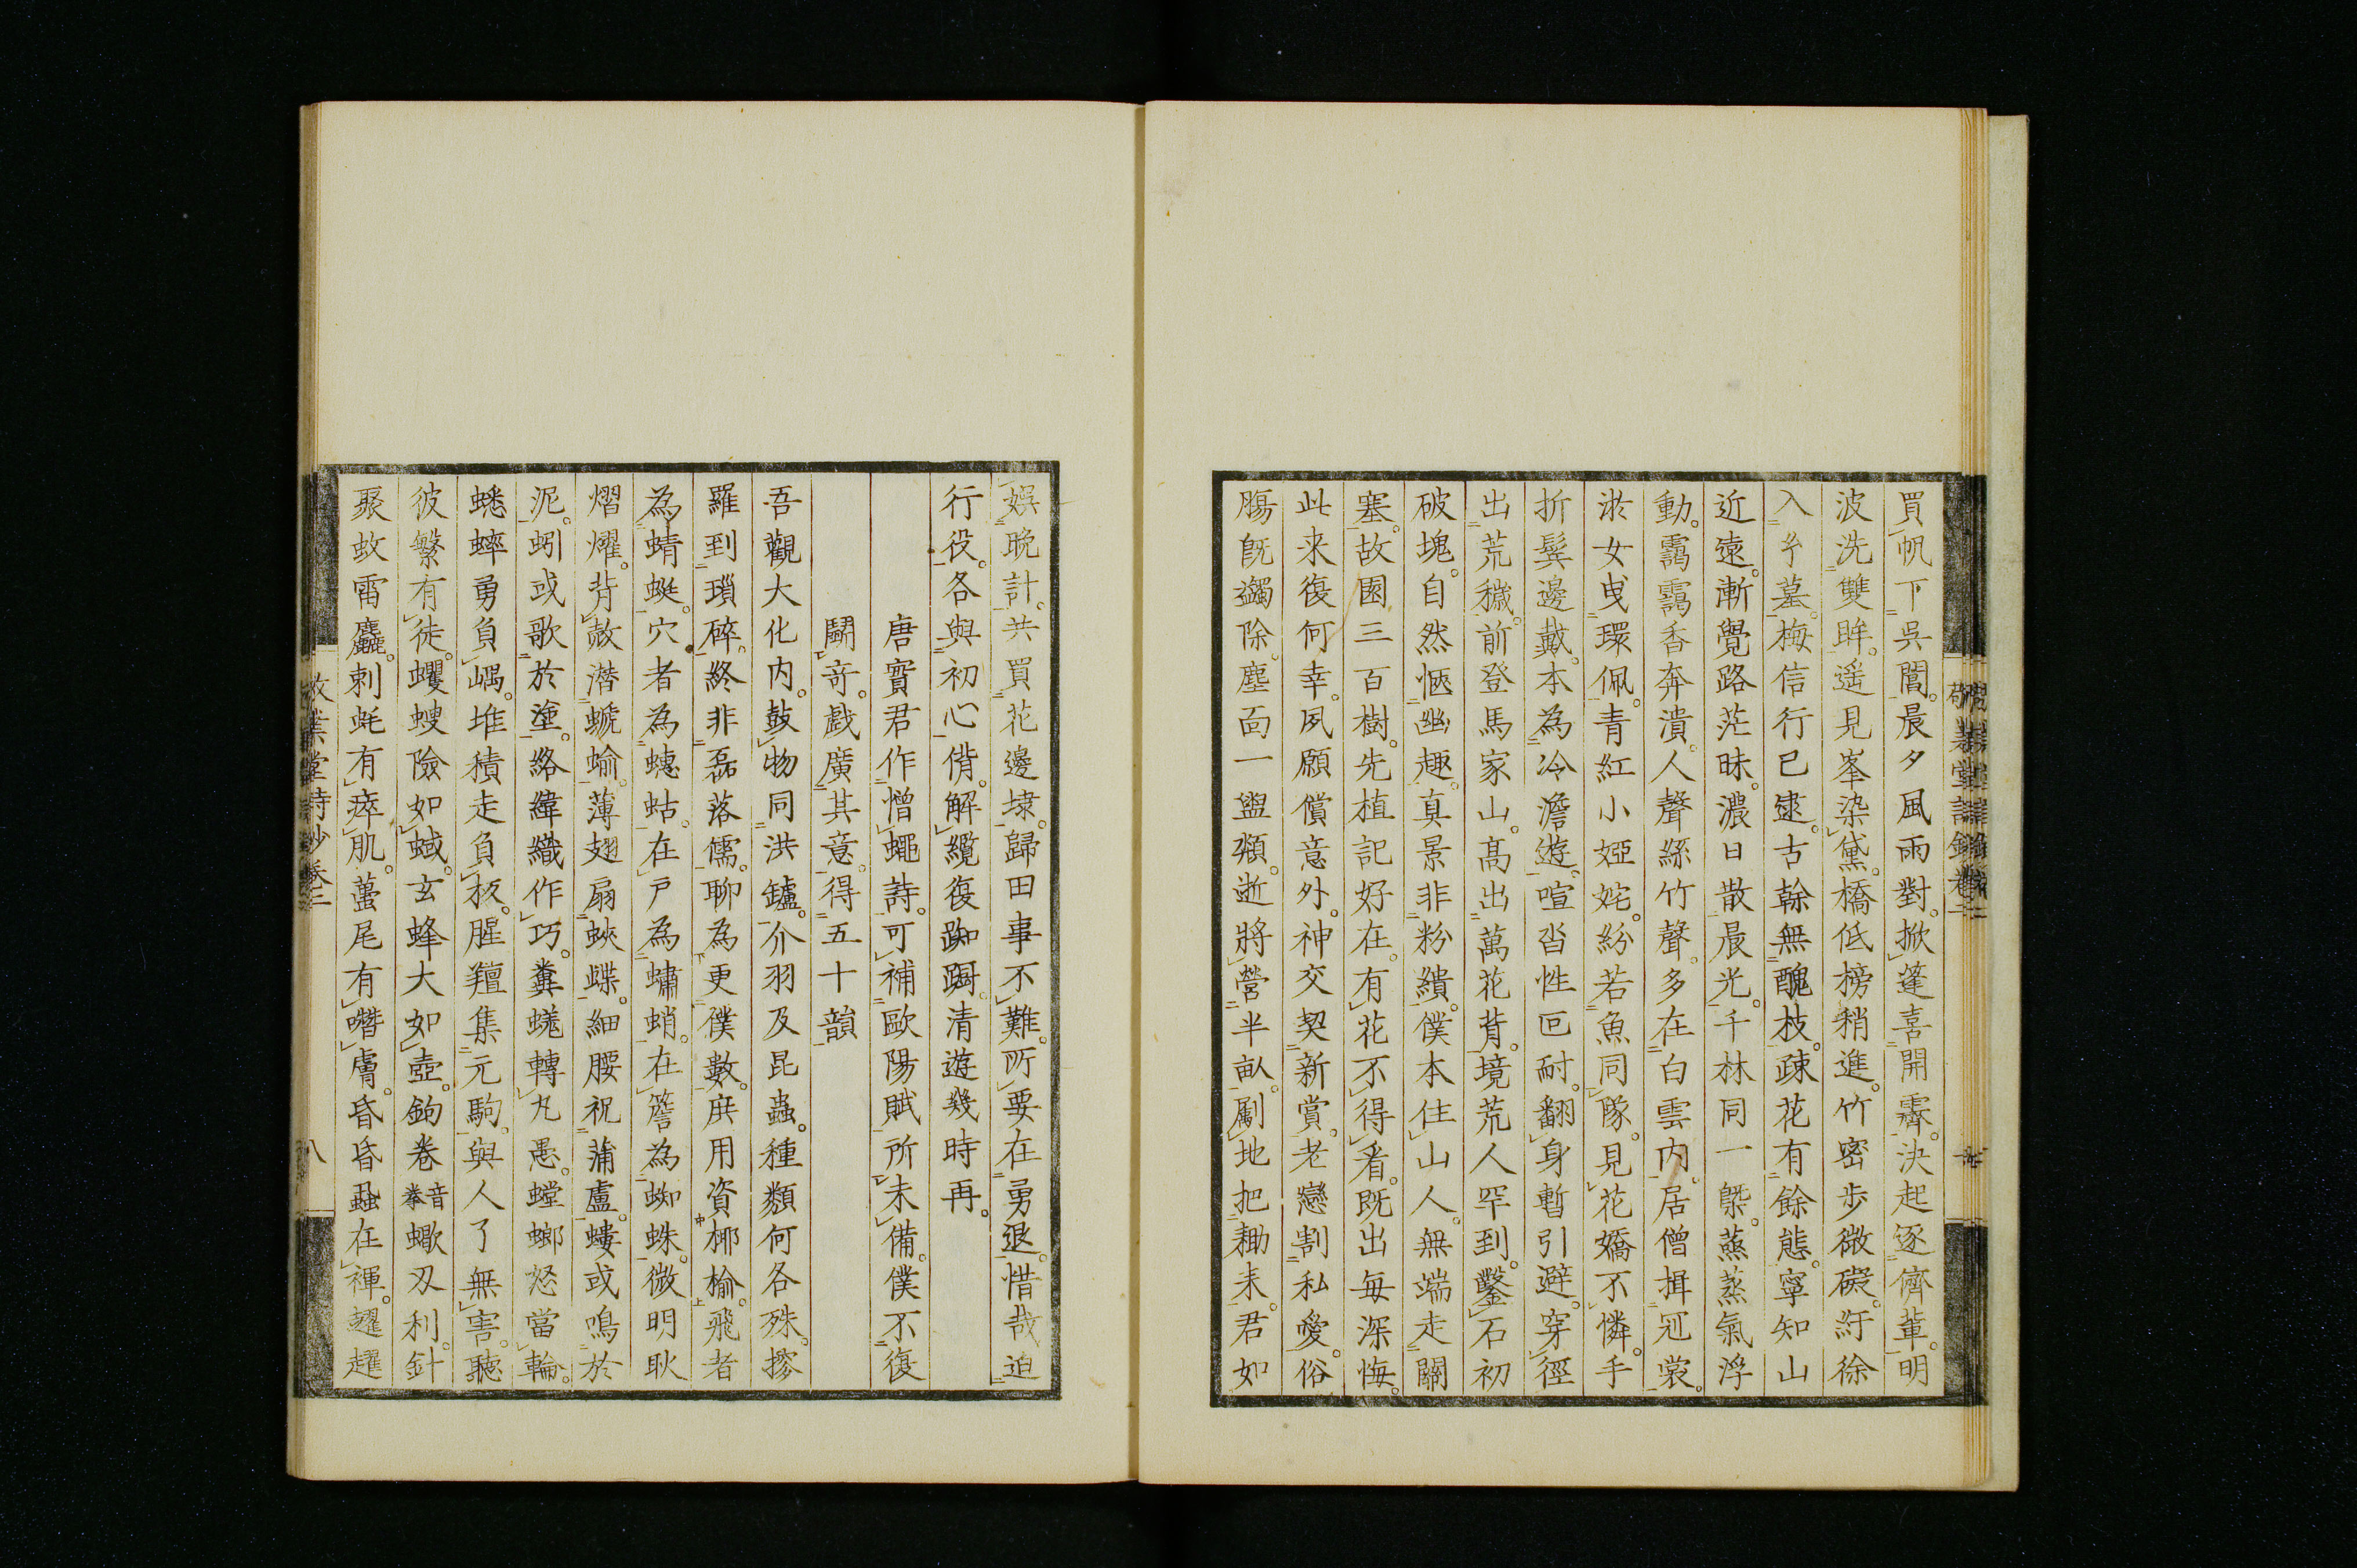 買帆下呉閶。晨夕風雨對。掀篷喜開霽。決起逐儕輩。明
波洗雙眸。遥見峯染黛。橋低榜稍進。竹密歩微礙。紆徐
入乡墓。梅信行已逮。古榦無醜枝。疎花有餘態。寧知山
近遠。漸覺路茫昧。濃日散晨光。千林同一槩。蒸蒸氣浮
動。靄靄香奔潰。人聲絲竹聲。多在白雲内。居僧揖冠裳。
游女曳環佩。青紅小婭姹。紛若魚同隊。見花嬌不憐。手
折鬓邊戴。本為冷澹遊。喧沓性叵耐。翻身暫引避。穿徑
出荒穢。前登馬家山。髙出萬花背。境荒人罕到。鑿石初
破塊。自然愜幽趣。真景非粉繢。僕本住山人。無端走關
塞。故園三百樹。先植記好在。有花不得看。既出毎深悔。
此来復何幸。夙願償意外。神交契新賞。老戀割私愛。俗
腸既蠲除。塵面一盥頮。逝將營半畝。劚地把耡耒。君如
娯晩計。共買花邊埭。歸田事不難。所要在勇退。惜哉迫
行役。各與初心偝。解纜復踟蹰。清遊幾時再。
唐實君作憎蠅詩。可補歐陽賦所未備。僕不復
鬭竒。戯廣其意。得五十韻
吾觀大化内。鼓物同洪鑪。介羽及昆蟲。種類何各殊。摉
羅到瑣碎。終非磊落儒。聊為更僕數。庶用資揶揄。飛者
為蜻蜓。穴者為蟪蛄。在戸為蠨蛸。在簷為蜘蛛。微明耿
熠燿。背皷潜螔蝓。薄翅扇蛺蝶。細腰祝蒲盧。螻或鳴於
泥。蚓或歌於塗。絡緯織作巧。糞蜣轉丸愚。螳螂怒當輪。
蟋蟀勇負嵎。堆積走負板。腥羶集元駒。與人了無害。聽
彼繁有徒。蠼螋險如蜮。玄蜂大如壺。鉤卷音拳蠍刃利。針
聚蚊雷麤。刺蚝有瘁肌。蠆尾有噆膚。昏昏蝨在褌。趯趯
敬業堂詩鈔卷二
八